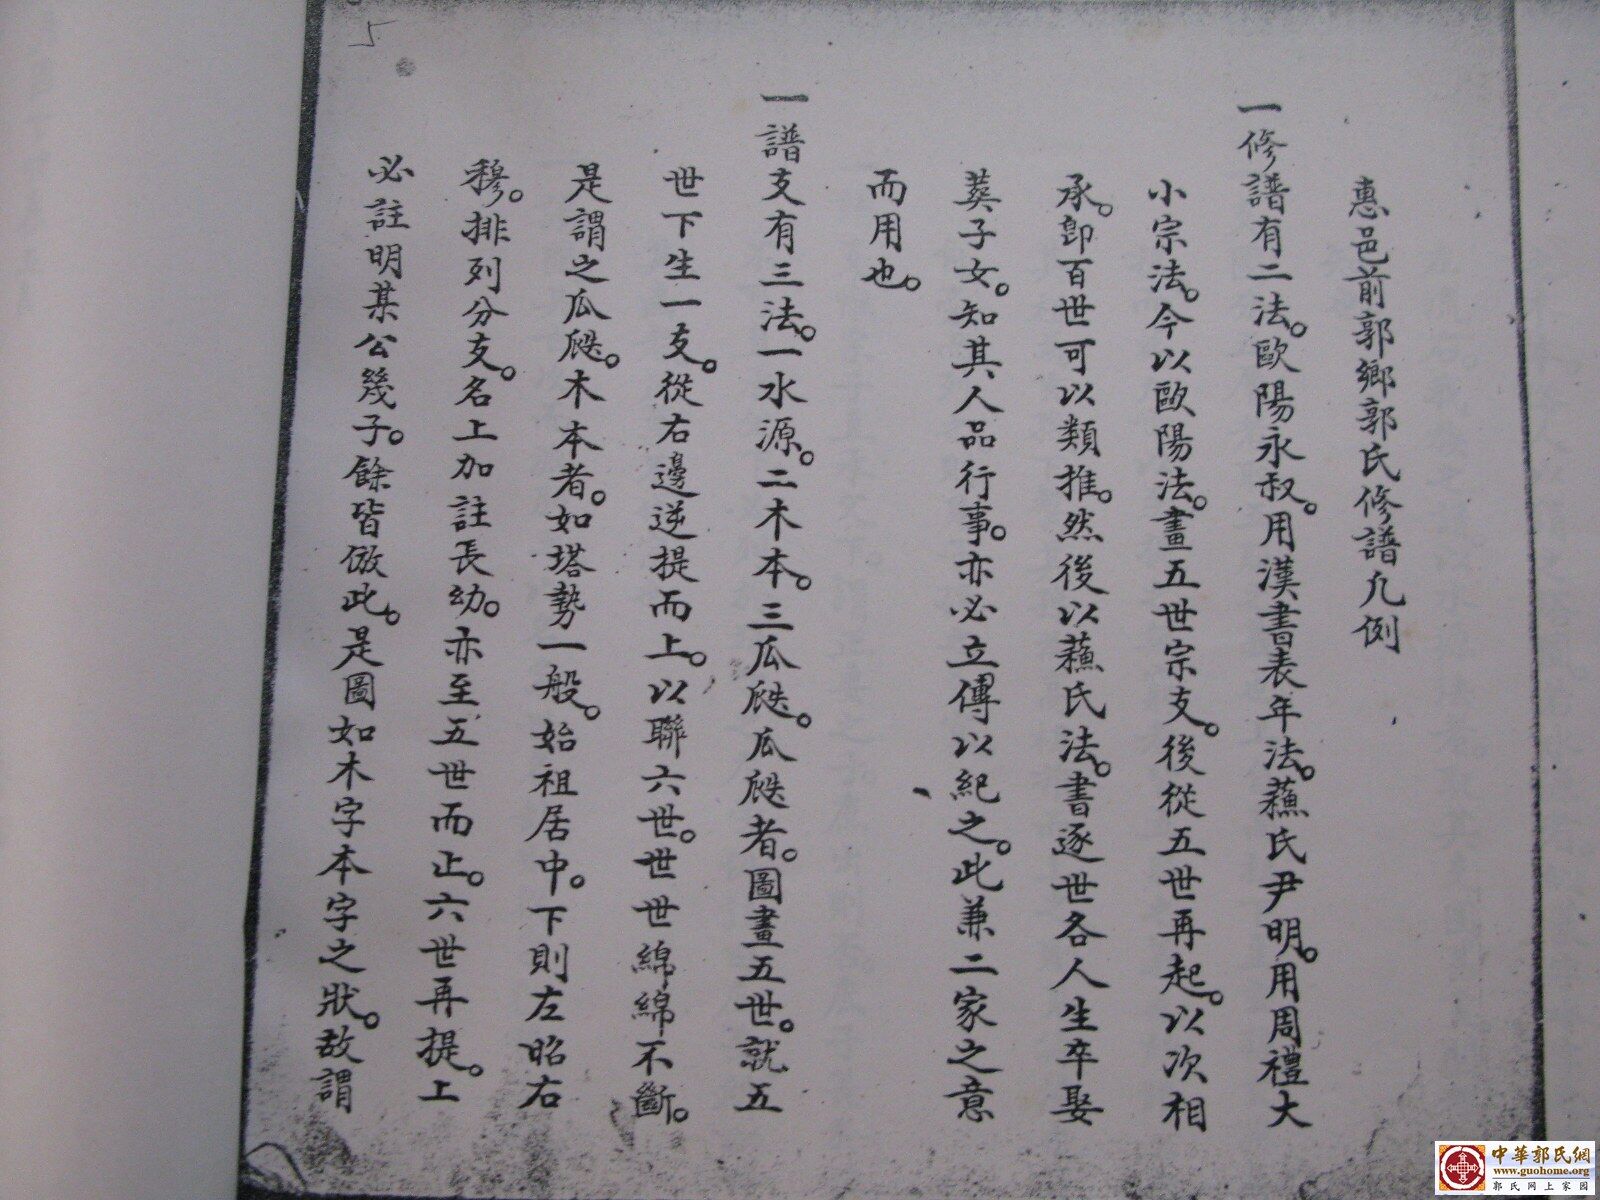 5
惠邑前郭鄉郭氏修譜凡例
一修譜有二法。歐陽永叔。用漢書表年法。蘓氏尹明。用周禮大
小宗法。今以歐陽法。畫五世宗支。後從五世再起。以次相
承。卽百世可以類推。然後以蘓氏法。書逐世各人生卒娶
葬子女。知其人品行事。亦必立傳以紀之。此兼二家之意
而用也。
一譜支有三法。一水源。二木本。三瓜瓞。瓜瓞者。圖畫五世。就五
世下生一支。從右邊逆提而上。以聯六世。世世綿綿不斷。
是謂之瓜瓞。木本者。如塔勢一般。始祖居中。下則左昭右
穆。排列分支。名上加註長幼。亦至五世而止。六世再提。上
必註明某公幾子。餘皆倣此。是圖如木字本字之狀。故謂
中華郭氏網
www.guohome.org
郭氏网上家园